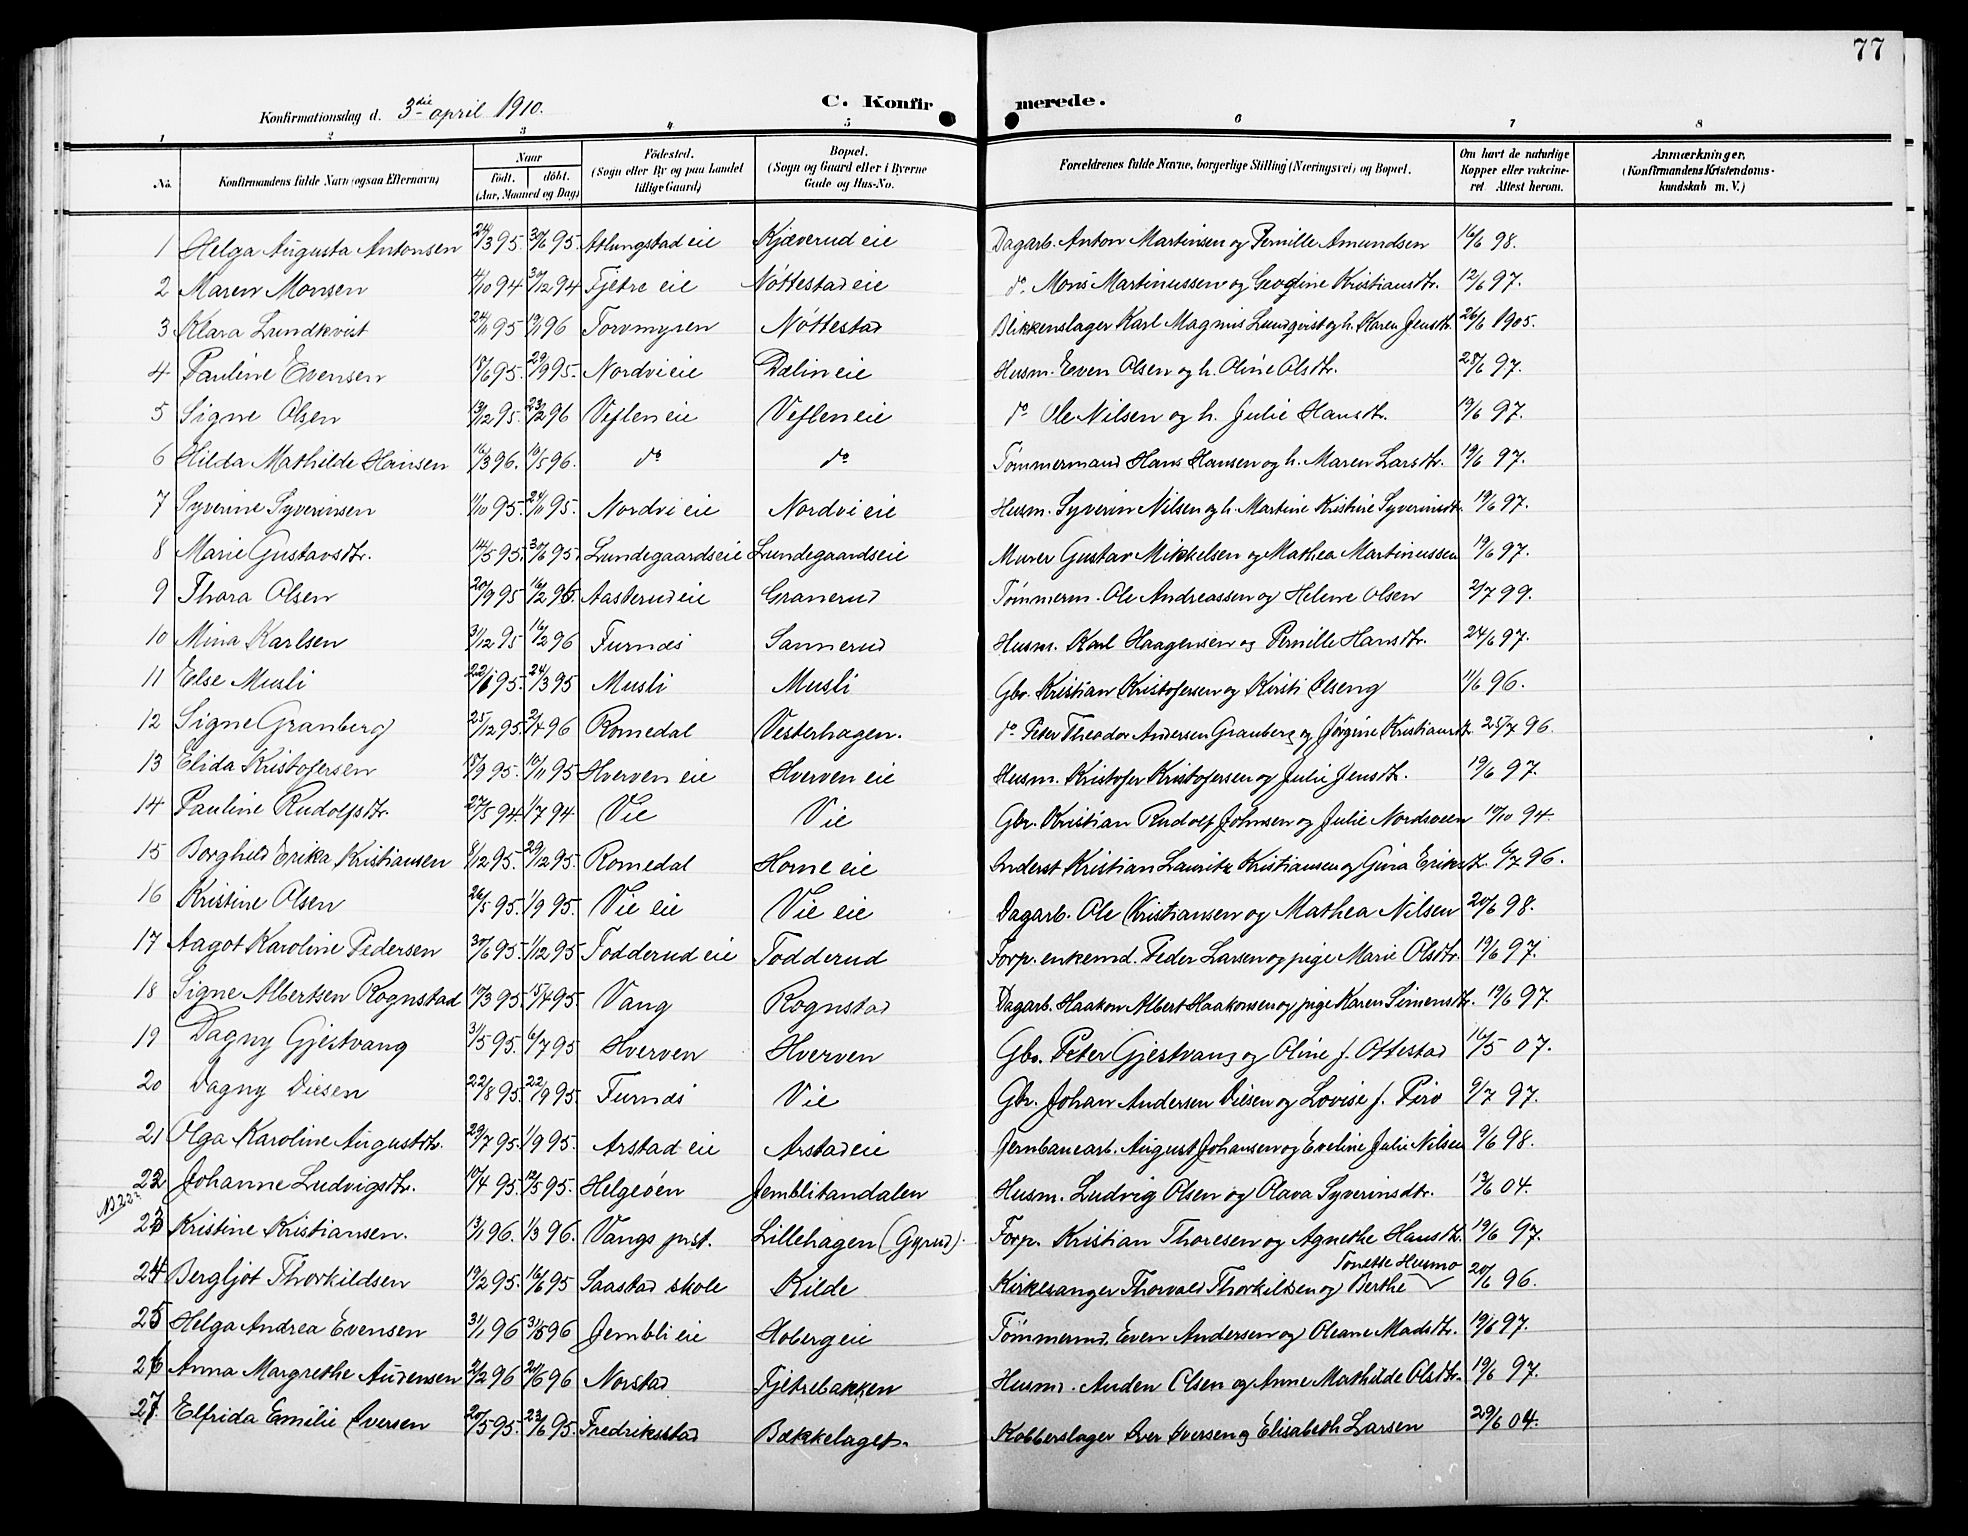 77
Konfirmationsdag d. 3die april 1910.
C. Konfirmerede.
1 2 3 4 5 6 7 8
No. Konfirmandens fulde Navn (ogsaa Efternavn) Naar født. døbt. (Aar, Maaned og Dag) Fødested. (Sogn eller By og paa Landet tillige Gaard) Bopæl. (Sogn og Gaard eller i Byerne Gade og Hus-No. Forældrenes fulde Navne, borgerlige Stilling (Næringsvei) og Bopæl. Om havt de naturlige Kopper eller vakcineret. Attest herom. Anmærkninger. (Konfirmandens Kristendomskundskab m. V.)
1 Helga Augusta Antonsen 24/3 95. 30/6 95. Atlungstad eie Kjæverud eie Dagarb. Anton Martinsen og Pernille Amundsen 16/6 98.
2 Maren Monsen 4/10 94 30/12 94 Fjetre eie Nøttestad eie do. Mons Martinussen og Georgine Kristiansdtr. 12/6 97.
3 Klara Lundkvist 24/11 95 19/1 96 Torvmyren Nøttestad Blikkenslager Karl Magnus Lundqvist og h. Karen Jensdtr. 26/6 1905.
4 Pauline Evensen 17/6 95. 29/9 95. Nordvi eie Dælin eie Husm. Even Olsen og h. Oline Olsdtr. 28/6 97.
5 Signe Olsen 13/12 95. 23/2 96 Veflen eie Veflen eie do Ole Nilsen og h. Julie Hansdtr. 19/6 97.
6 Hilda Mathilde Hansen 16/3 96. 10/5 96. do do Tømmermand Hans Hansen og h. Maren Larsdtr. 19/6 97.
7 Syverine Syverinsen 11/10 95. 24/11 95. Nordvi eie Nordvi eie Husm. Syverin Nilsen og h. Martine Kristine Syverinsdtr. 19/6 97.
8 Marie Gustavsdtr. 14/5 95. 30/6 95. Lundegaardseie Lundegaardseie Murer Gustav Mikkelsen og Mathea Martinussen 19/6 97.
9 Thora Olsen 20/9 95 Aasterud eie Granerud Tømmerm. Ole Andreassen og Helene Olsen 2/7 99.
10 Mina Karlsen 31/12 95 16/2 96 Furnæs Sannerud Husm. Karl Haagensen og Pernille Hansdtr. 24/6 97.
11 Else Musli 22/1 95. 24/3 95 Musli Musli Gbr. Kristian Kristofersen og Kirsti Olseng 11/6 96.
12 Signe Granberg 25/12 95. 2/4 96 Romedal Vesterhagen. do Peter Theodor Andersen Granberg og Jørgine Kristiansdtr. 25/7 96.
13 Elida Kristofersen 18/9 95. 10/11 95 Hverven eie Hverven eie Husm. Kristofer Kristofersen og Julie Jensdtr. 19/6 97.
14 Pauline Rudolfsdtr. 27/5 94. 1/7 94 Vie Vie Gbr. Kristian Rudolf Johnsen og Julie Nordsveen 10/10 94.
15 Borghild Erika Kristiansen 8/12 95. 29/12 95. Romedal Horne eie Inderst Kristian Lauritz Kristiansen og Gina Eriksdtr. 6/7 96.
16 Kristine Olsen 26/5 95. 1/9 95. Vie eie Vie eie Dagarb. Ole Kristiansen og Mathea Nilsen 20/6 98.
17 Aagot Karoline Pedersen 30/6 95. 1/12 95 Todderud eie Todderud Forp. enkemd. Peder Larsen og pige Marie Olsdtr. 19/6 97.
18 Signe Albertsen Rognstad 10/3 95. 15/4 95. Vang Rognstad Dagarb. Haakon Albert Haakonsen og pige Karen Simensdtr. 19/6 97.
19 Dagny Gjestvang 3/5 95. 6/7 95 Hverven Hverven Gbr. Peter Gjestvang og Oline f. Ottestad 16/5 07.
20 Dagny Diesen 22/8 95. 22/9 95. Furnæs Vie Gbr. Johan Andersen Diesen og Lovise f. Piro 9/7 97.
21 Olga Karoline Augustdtr. 29/7 95. 1/9 95. Arstad eie Arstad eie Jernbanearb. August Johansen og Eveline Julie Nilsen 9/6 98.
22 Johanne Ludvigsdtr. 10/4 95. 12/5 95. Helgeøen Jemblitandalen Husm. Ludvig Olsen og Olava Syverinsdtr. 13/6 04.
NB 22?
23 Kristine Kristiansen. 13/1 96. 1/3 96. Vangs prst. Lillehagen (Gyrud). Forp. Kristian Thoresen og Agnethe Hansdtr. 19/6 97.
24 Bergljot Thorkildsen 19/2 95. 16/6 95 Saastad skole Kilde Kirkesanger Thorvald Thorkildsen og Berthe Tonette Husmo 20/6 96.
25 Helga Andrea Evensen 31/1 96 31/5 96 Jembli eie Hoberg eie Tømmermd. Even Andersen og Oleane Madsdtr. 19/6 97.
26 Anna Margrethe Audensen 2/2 96 Norstad Fjetrebakken Husmd. Auden Olsen og Anne Mathilde Olsdtr. 19/6 97.
27. Elfrida Emilie Iversen 20/5 95. 23/6 95. Fredriksstad Bækkelaget. Kobberslager Iver Iversen og Elisabeth Larsen 29/6 04.